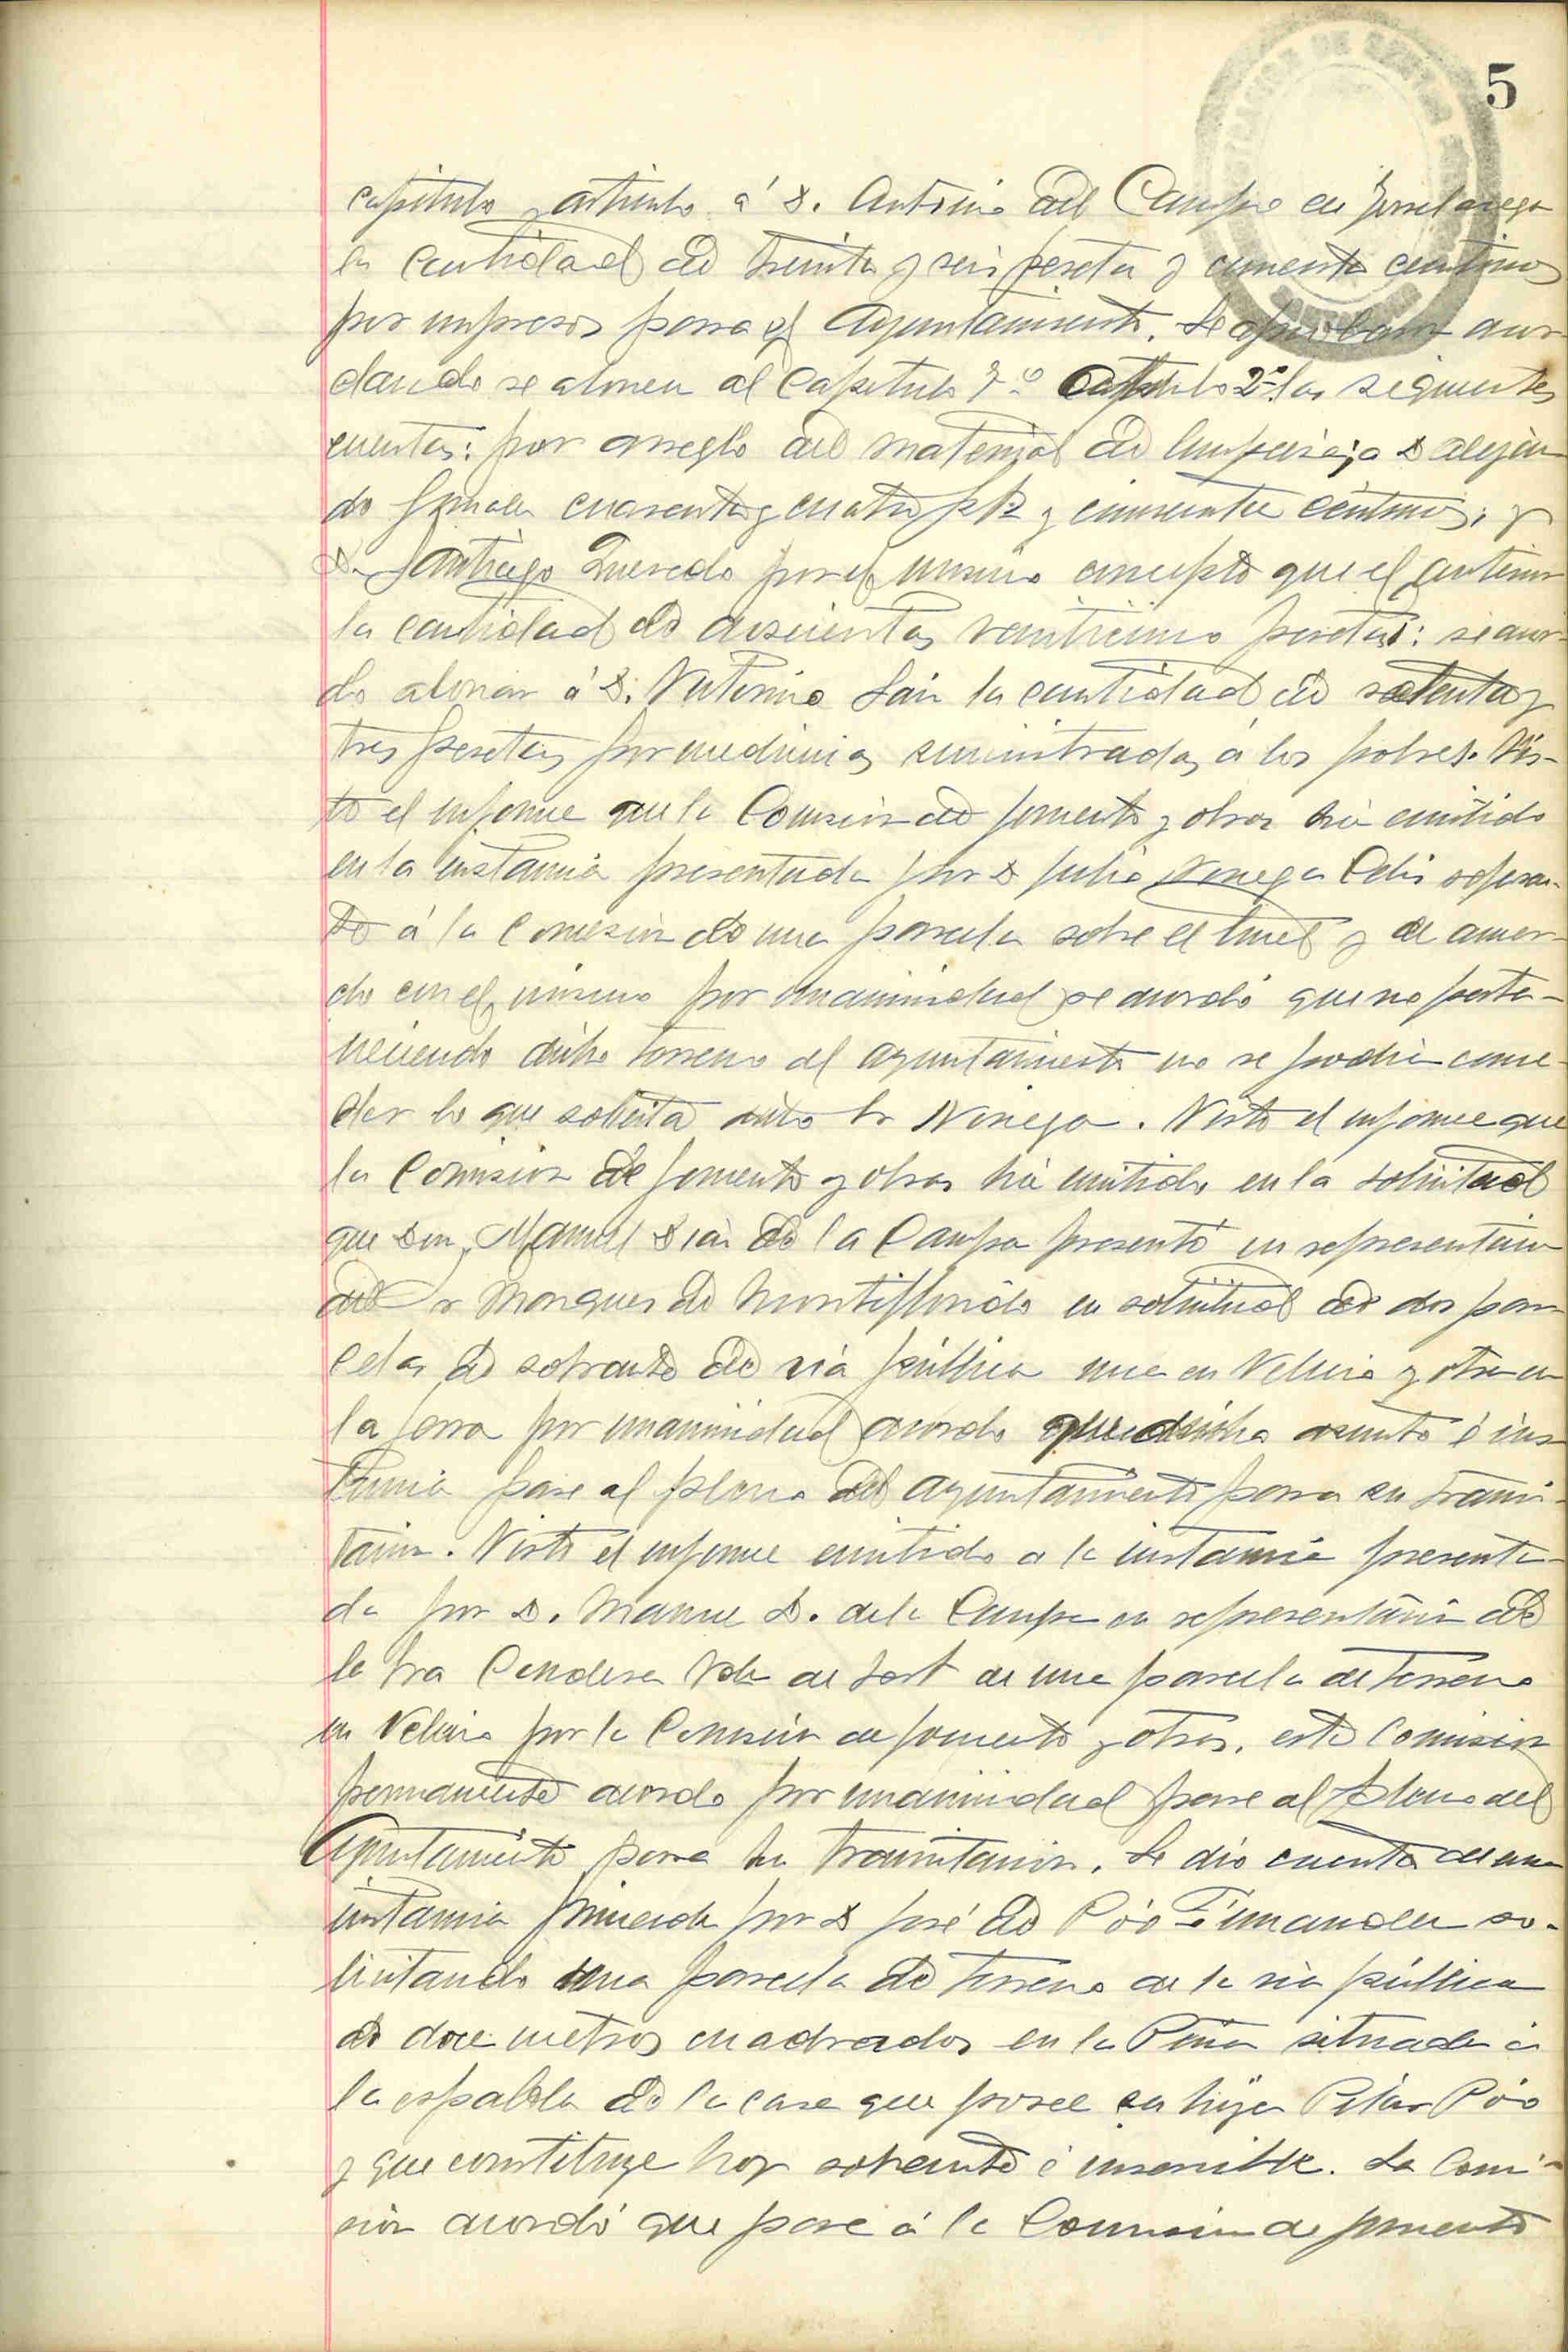 5
capitulo y articulo á D. Antonio del Campo en Torrelavega
la cantidad de treinta y seis pesetas y cincuenta centimos
por impresos para el Ayuntamiento. Se aprobaron acor-
dando se abonen al Capitulo 7º articulo 2º las siguientes
cuentas: por arreglo del material de limpieza; a D Alejan-
do cuarenta y cuatro pts y cincuenta centimos; y
D. Santiago Quevedo por el mismo concepto que el anterior
la cantidad de doscientas veinticinco pesetas: se acor-
do abonar á D. Victorino Sainz la cantidad de setenta y
tres pesetas por medicinas suministradas á los pobres. Vis-
to el informe que la Comision de fomento y obras ha emitido
en la instancia presentada por D Julio Noriega Celis referen-
te á la concesion de una parcela sobre el tunel y de acuer-
do con el mismo por unanimidad se acordó que no perte-
neciendo dicho terreno al ayuntamiento no se podia conce-
der lo que solicita dicho Sr Noriega. Visto el informe que
la Comision de fomento y obras ha emitido en la solicitud
que Don Manuel Diaz de la Campa presentó en representacion
del Sr Marques de Movellan en solicitud de dos par-
celas de sobrante de via pública una en Velecio y otra en
la por unanimidad acordo que dicho asunto é ins-
tancia pase al pleno del ayuntamiento para su trami-
tacion. Visto el informe emitido a la instancia presenta-
da por D. Manuel D. de la Campa en representacion de
la Sra Condesa Vda de de una parcela de terreno
en por la Comisión de fomento y obras, esta Comision
permanente acordo por unanimidad pase al Pleno del
Ayuntamiento para su tramitacion. Se dio cuenta de una
instancia firmada por D José de Póo Fernandez so-
licitando una parcela de terreno de la via pública
de doce metros cuadrados en la situada á
la espalda de la casa que posee su hija Pilar Póo
y que constituye hoy sobrante é inservible. La Comi-
sion acordó que pase á la Comision de fomento